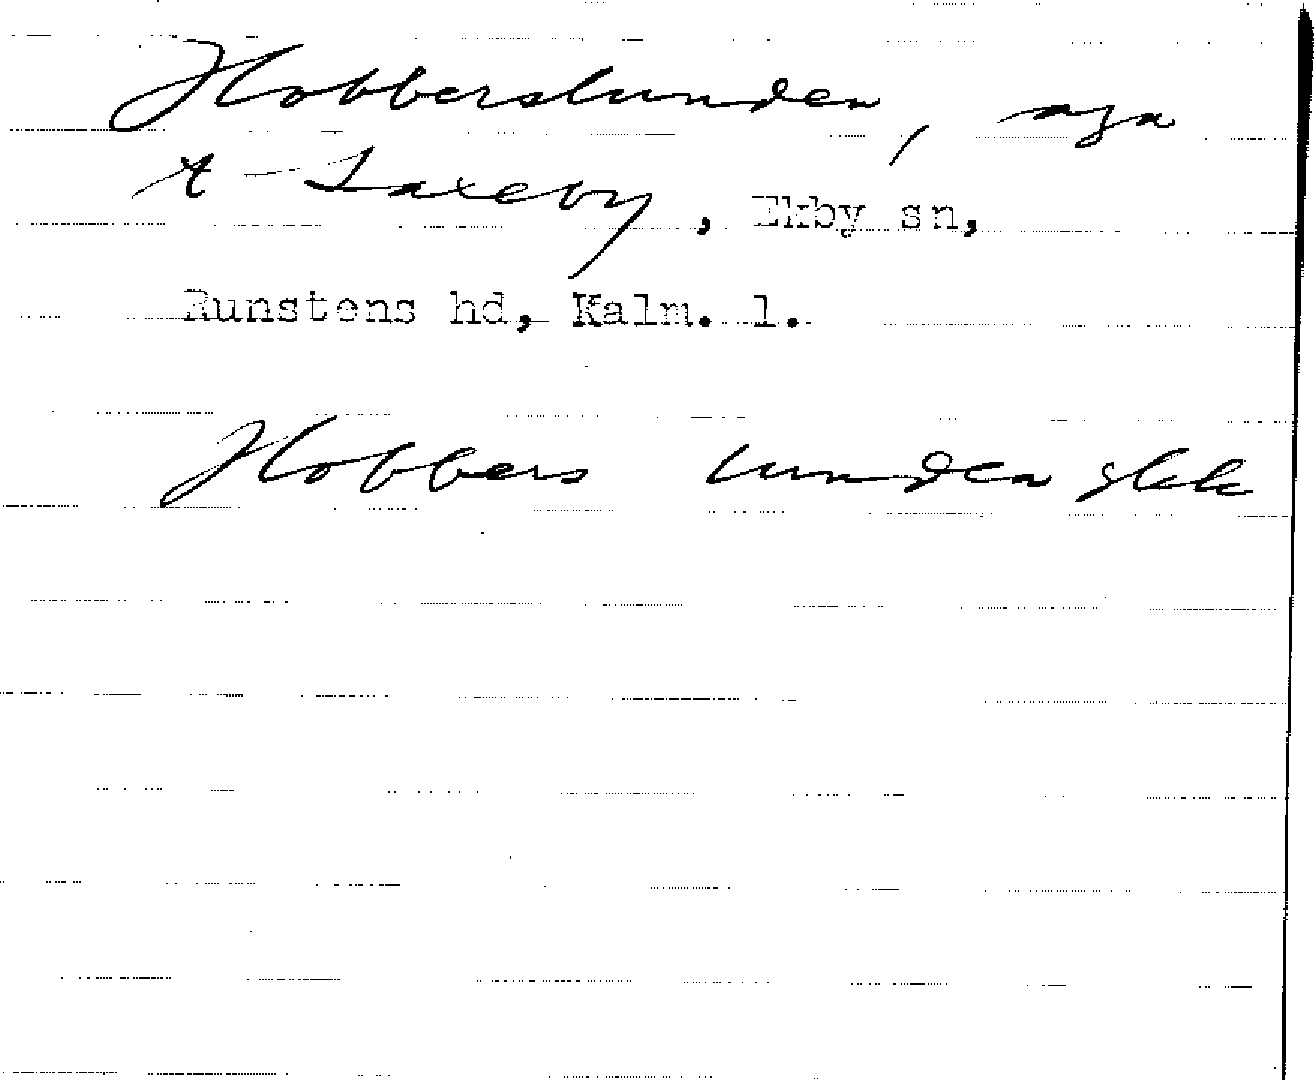 Hobberslunden, äga
t Laxeby, Ekby sn,
Runstens hd, Kalm. l.
Hobbers lunden